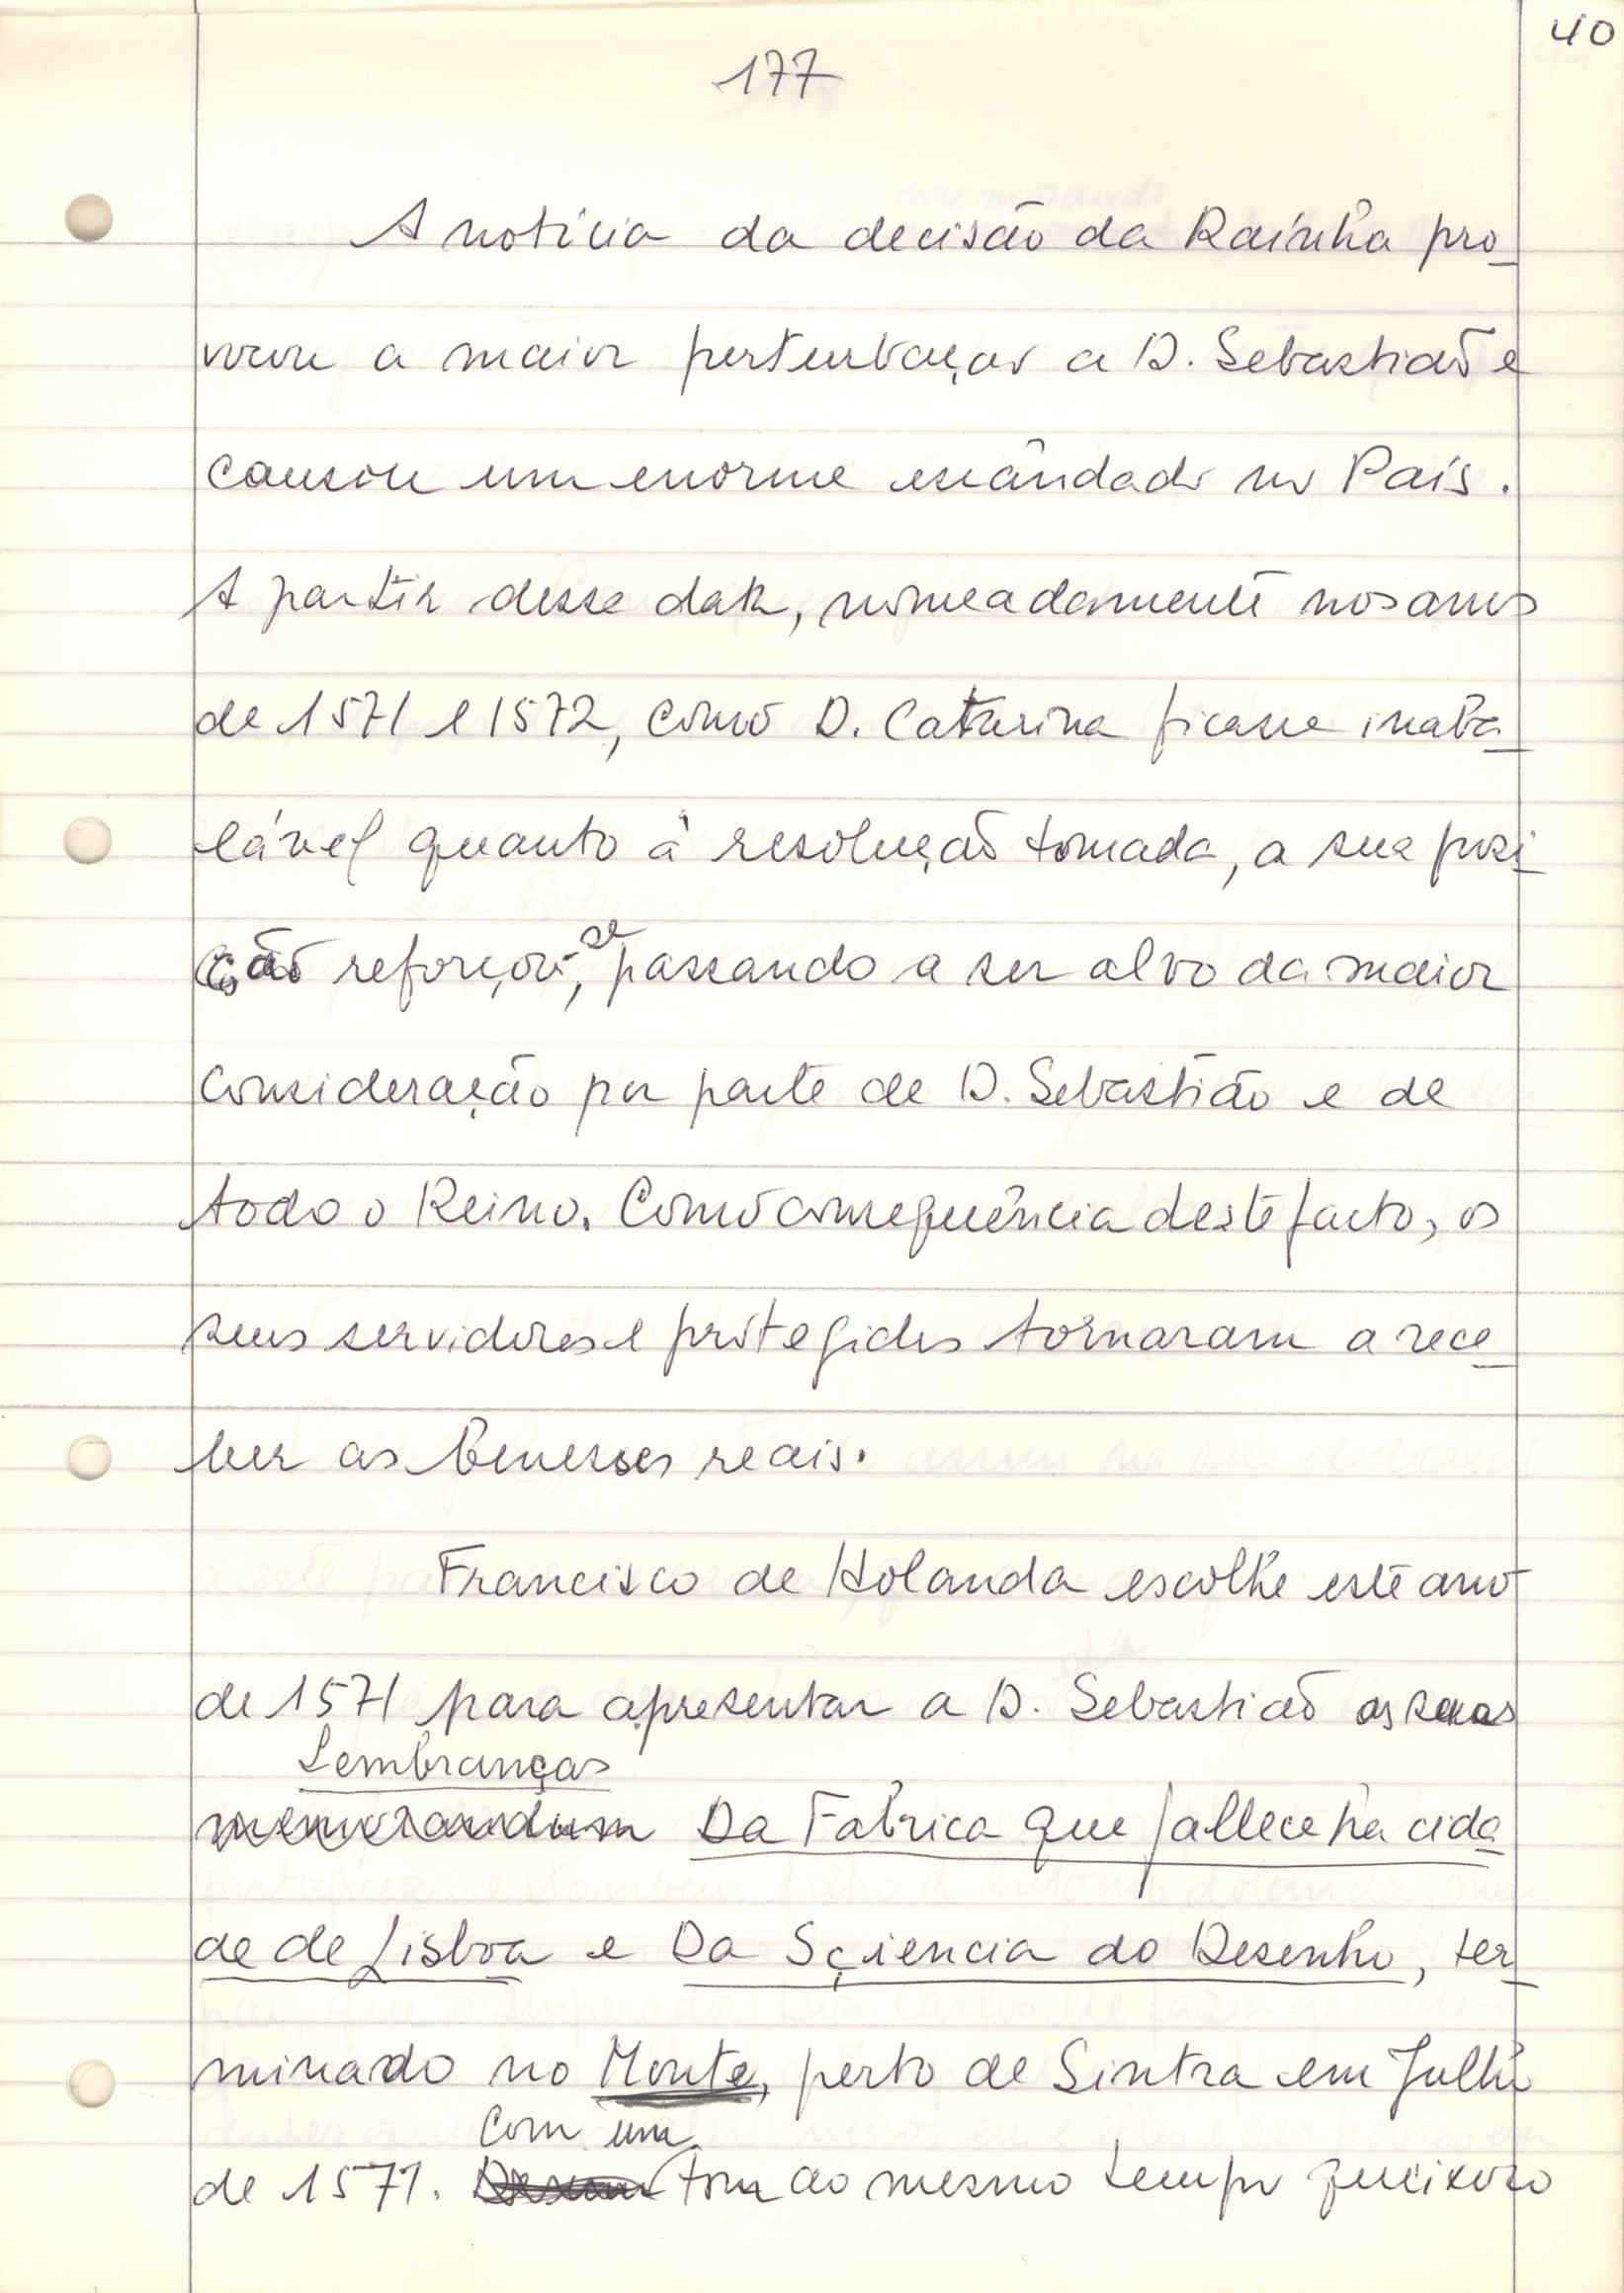 40
177
A notícia da decisão da Rainha pro
vocou a maior perturbação a D. Sebastião e
causou um enorme escândado no País.
A partir desse data, nomeadamente nos anos
de 1571 e 1572, como D. Catarina ficasse inaba
lável quanto à resolução tomada, a sua posi
ção reforçou-se, passando a ser alvo da maior
consideração por parte de D. Sebastião e de
todo o Reino. Como consequência deste facto, os
seus servidores e protegidos tornaram a rece
ber as benesses reais.
Francisco de Holanda escolhe este ano
de 1571 para apresentar a D. Sebastião as suas
Lembranças
memorandum Da Fabrica que fallece ha cida
de de Lisboa e Da Sciencia do Desenho, ter
minado no Monte, perto de Sintra em Julho
com um
de 1571. tom ao mesmo tempo queixoso